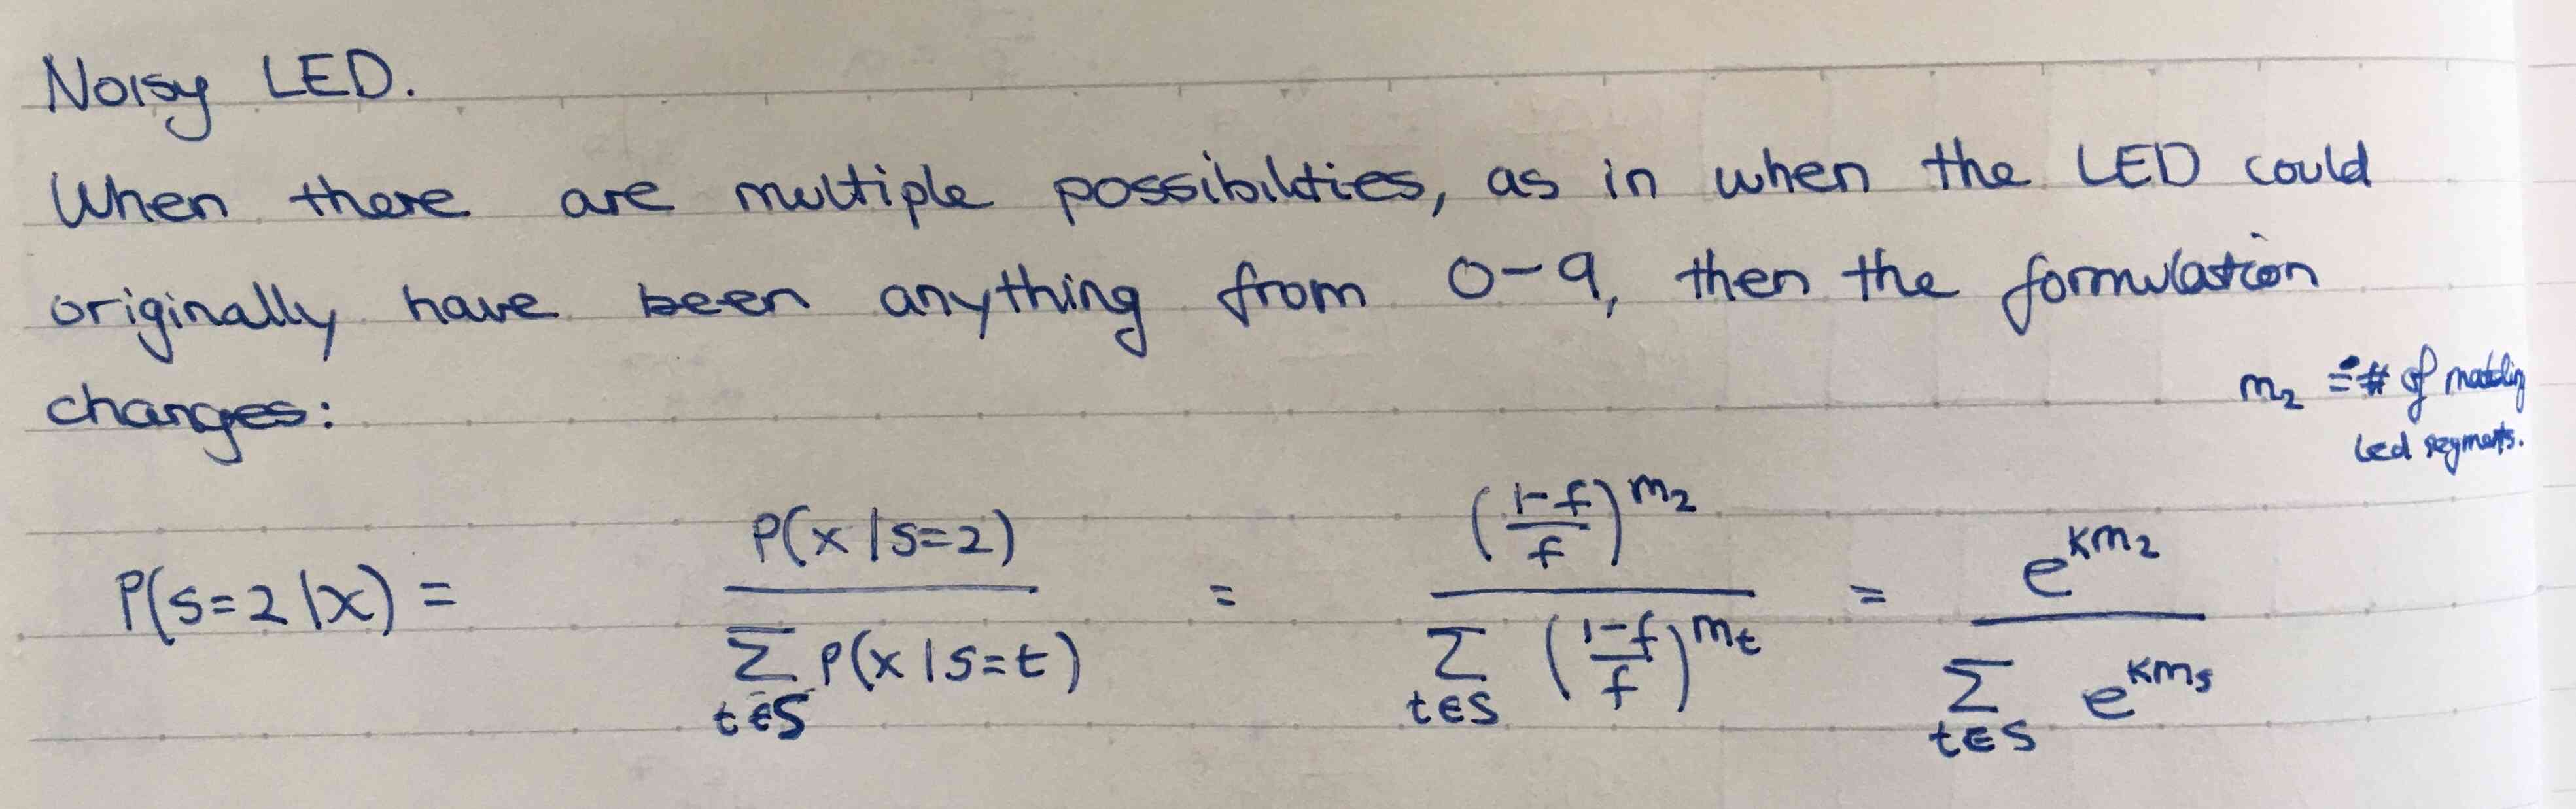 Noisy LED.
When there are multiple possibilities, as in when the LED could
originally have been anything from 0-9, then the formulation
changes:
m₂ = # of matching
led segments.
P(s=2|x) = P(x|s=2) / Σ_{t∈S} P(x|s=t) = ((1-f)/f)^{m₂} / Σ_{t∈S} ((1-f)/f)^{m_t} = e^{km₂} / Σ_{t∈S} e^{km_s}